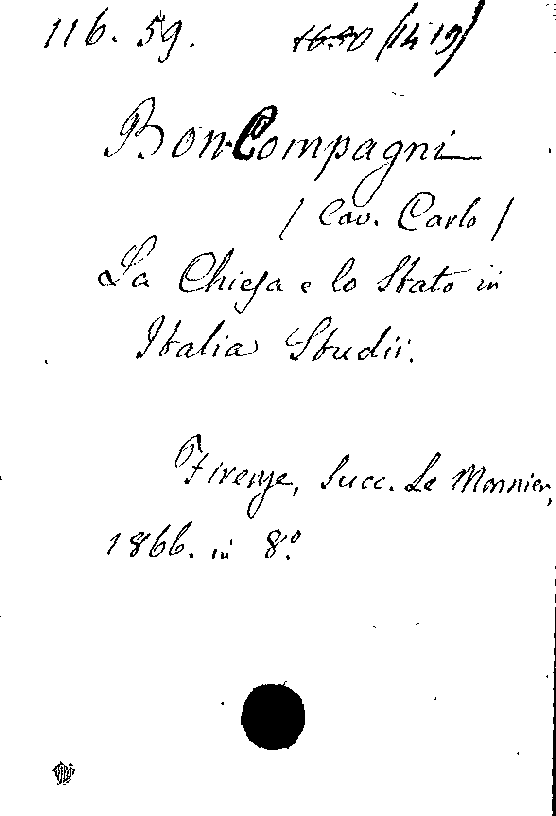 116. 59. 1630 (1419)
BonCompagni
/ Cav. Carlo /
La Chiesa e lo Stato in
Italia Studii.
Firenze, Succ. Le Monnier,
1866. in 8.º